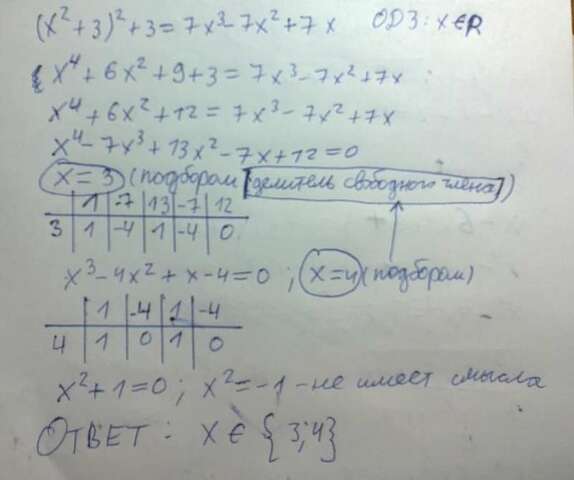 (x²+3)²+3=7x³-7x²+7x ОДЗ: x∈R
x⁴+6x²+9+3=7x³-7x²+7x
x⁴+6x²+12=7x³-7x²+7x
x⁴-7x³+13x²-7x+12=0
x=3 (подбором делитель свободного члена)
1 -7 13 -7 12
3 1 -4 1 -4 0
x³-4x²+x-4=0 ; x=4 (подбором)
1 -4 1 -4
4 1 0 1 0
x²+1=0 ; x²=-1 - не имеет смысла
ОТВЕТ: x∈{3;4}